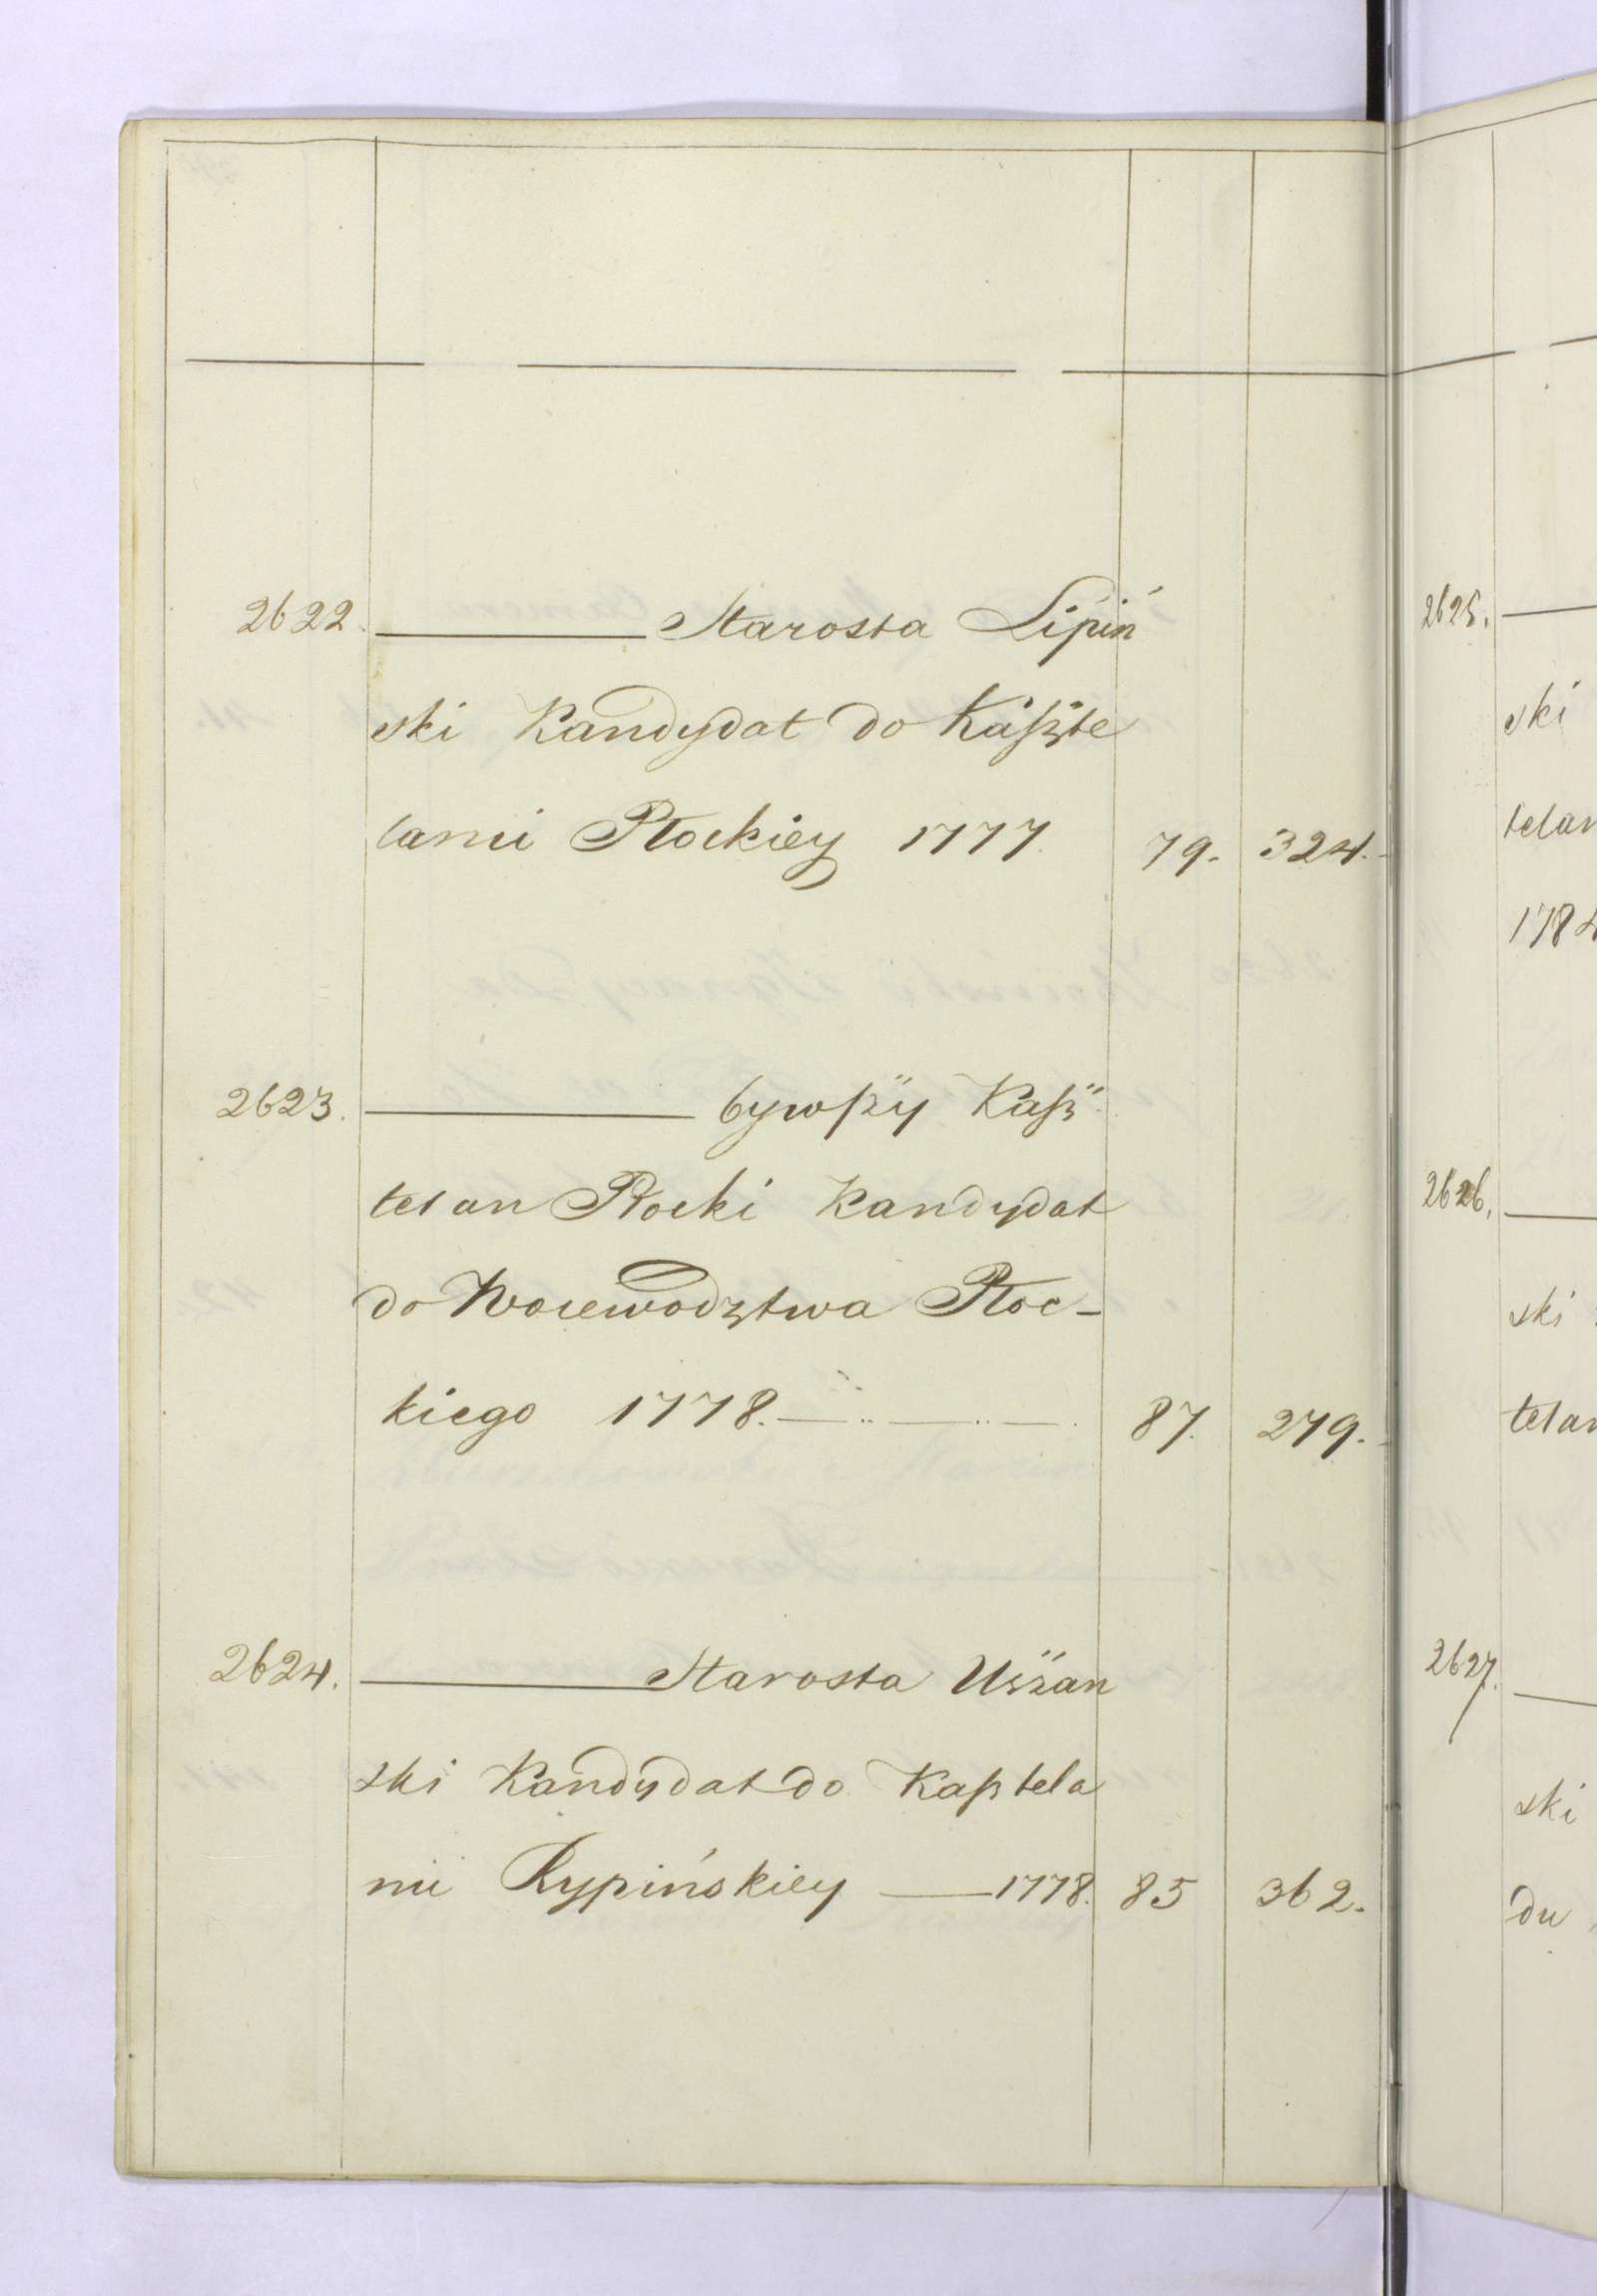 2622. ——— Starosta Lipiń
ski Kandydat do Kaszte
lanii Płockiey 1777. 79. 324.
2623. ——— bywszy Kasz
telan Płocki Kandydat
do Woiewodztwa Płoc-
kiego 1778. — — — 87. 279.
2624. ——— Starosta Uszań
ski Kandydat do Kasztela
nii Rypińskiey — 1778. 85 362.
2625. ———
ski
telan
178
2626. ———
ski
telan
2627. ———
ski
du